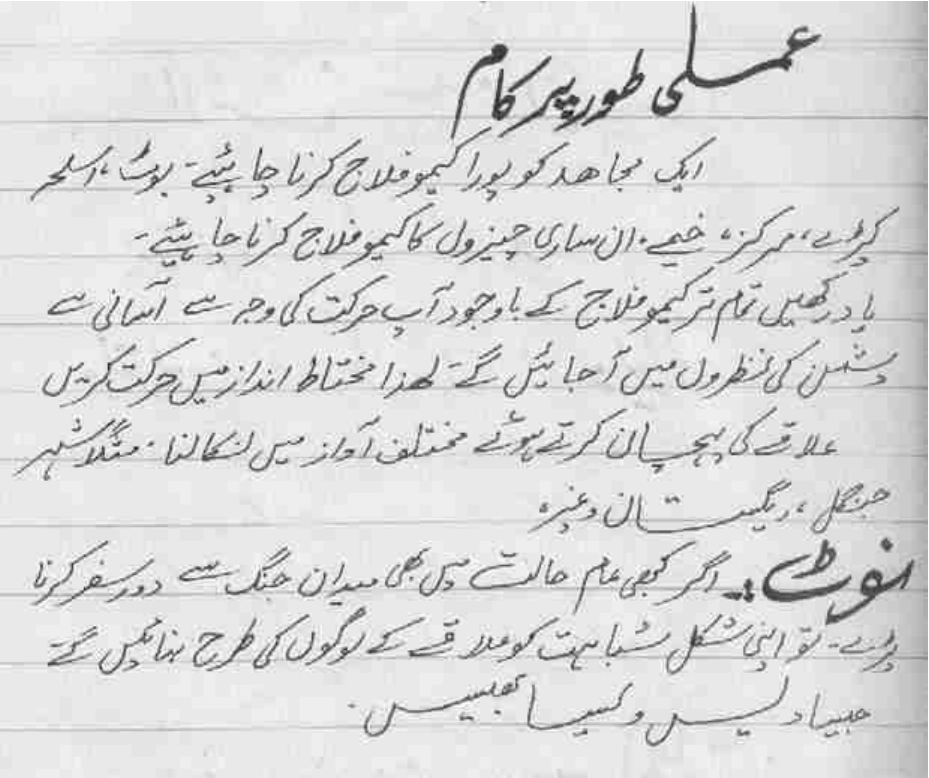 عملی طور پر کام
ایک مجاھد کو پورا کیموفلاج کرنا چاہئیے۔ بوٹ، اسلحہ
کپڑے، مرکز، خیمے۔ ان ساری چیزوں کا کیموفلاج کرنا چاہئیے۔
یاد رکھیں تمام تر کیموفلاج کے باوجود آپ حرکت کی وجہ سے آسانی سے
دشمن کی نظروں میں آجائیں گے۔ لھذا محتاط انداز میں حرکت کریں
علاقے کی پہچان کرتے ہوئے مختلف آواز میں نکالنا۔ مثلاً شہر
جنگل، ریگستان وغیرہ
نوٹ:۔ اگر کبھی عام حالت میں بھی میدان جنگ سے دور سفر کرنا
پڑے۔ تو اپنی شکل شباہت کو علاقے کے لوگوں کی طرح بنائیں گے
جیسا دیس ویسا بھیس۔